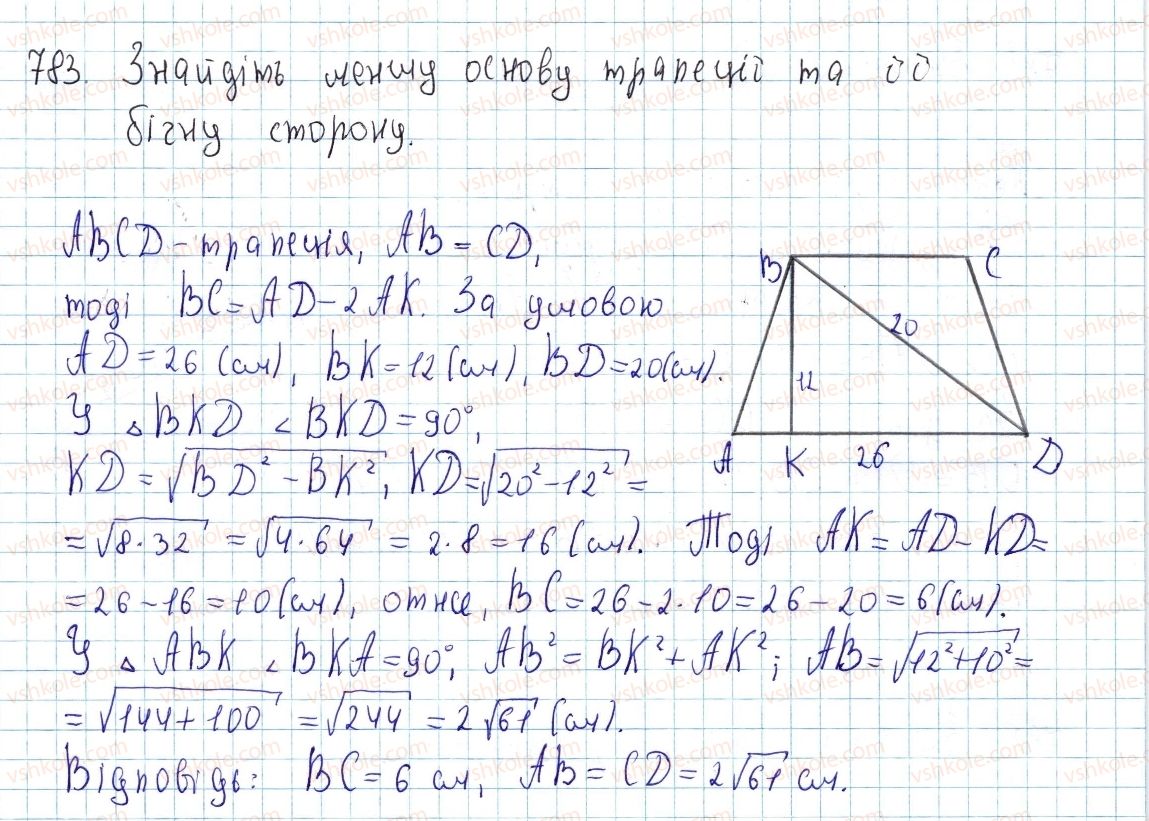 783. Знайдіть меншу основу трапеції та її
бічну сторону.
ABCD – трапеція, AB = CD,
тоді BC = AD – 2AK. За умовою
AD = 26 (см), BK = 12 (см), BD = 20 (см).
У △ BKD ∠ BKD = 90°,
KD = √(BD² – BK²), KD = √(20² – 12²) =
= √(8·32) = √(4·64) = 2·8 = 16 (см). Тоді AK = AD – KD =
= 26 – 16 = 10 (см), отже, BC = 26 – 2·10 = 26 – 20 = 6 (см).
У △ ABK ∠ BKA = 90°, AB² = BK² + AK²; AB = √(12² + 10²) =
= √(144 + 100) = √244 = 2√61 (см).
Відповідь: BC = 6 см, AB = CD = 2√61 см.
B
C
20
12
A
K
26
D
vshkole.com